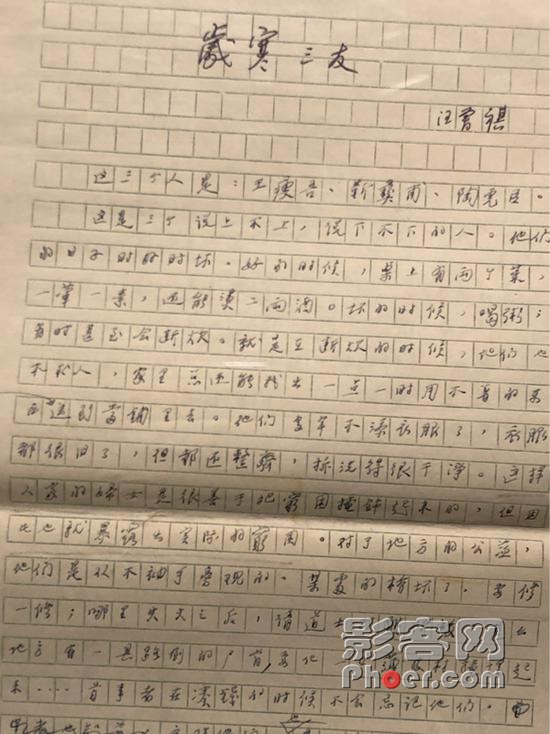 歲寒三友
汪曾祺
这三个人是：王瘦吾、靳彝甫、陶虎臣。
这是三个说上不上，说下不下的人。他们
的日子时好时坏。好的时候，桌上有两个菜，
一荤一素，还能烫二两酒。坏的时候，喝粥；
有时甚至会断炊。就是在断炊的时候，他们也
不求人，家里总还能找出一点一时用不着的东
西送到当铺里去。他们
不添衣服了，衣服
都很旧了，但都还整齐，拆洗得很干净。这样
人家的妇女是很善于把穷困掩饰起来的，但因
此也就暴露出实际的穷困。对于地方的公益，
他们是从不袖手旁观的。某处的桥坏了，要修
一修；哪里失火之后，清道
地方有一具路倒的尸首，要
起
来……首事者在凑钱的时候不会忘记他们。
影客网
Phoer.com